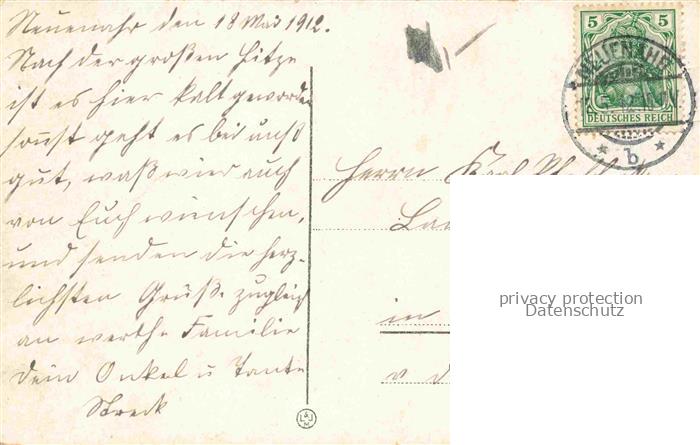 Neuenahr den 18 Mai 1912.
Nach der großen Hitze
ist es hier kalt geworden
sonst geht es bei unß
gut, waß wir auch
von Euch wünschen,
und senden die herz-
lichsten Grüße zugleich
an werthe Familie
Dein Onkel u Tante
Streck
5 5
DEUTSCHES REICH
* b *
Herrn Karl
in
v d
privacy protection
Datenschutz